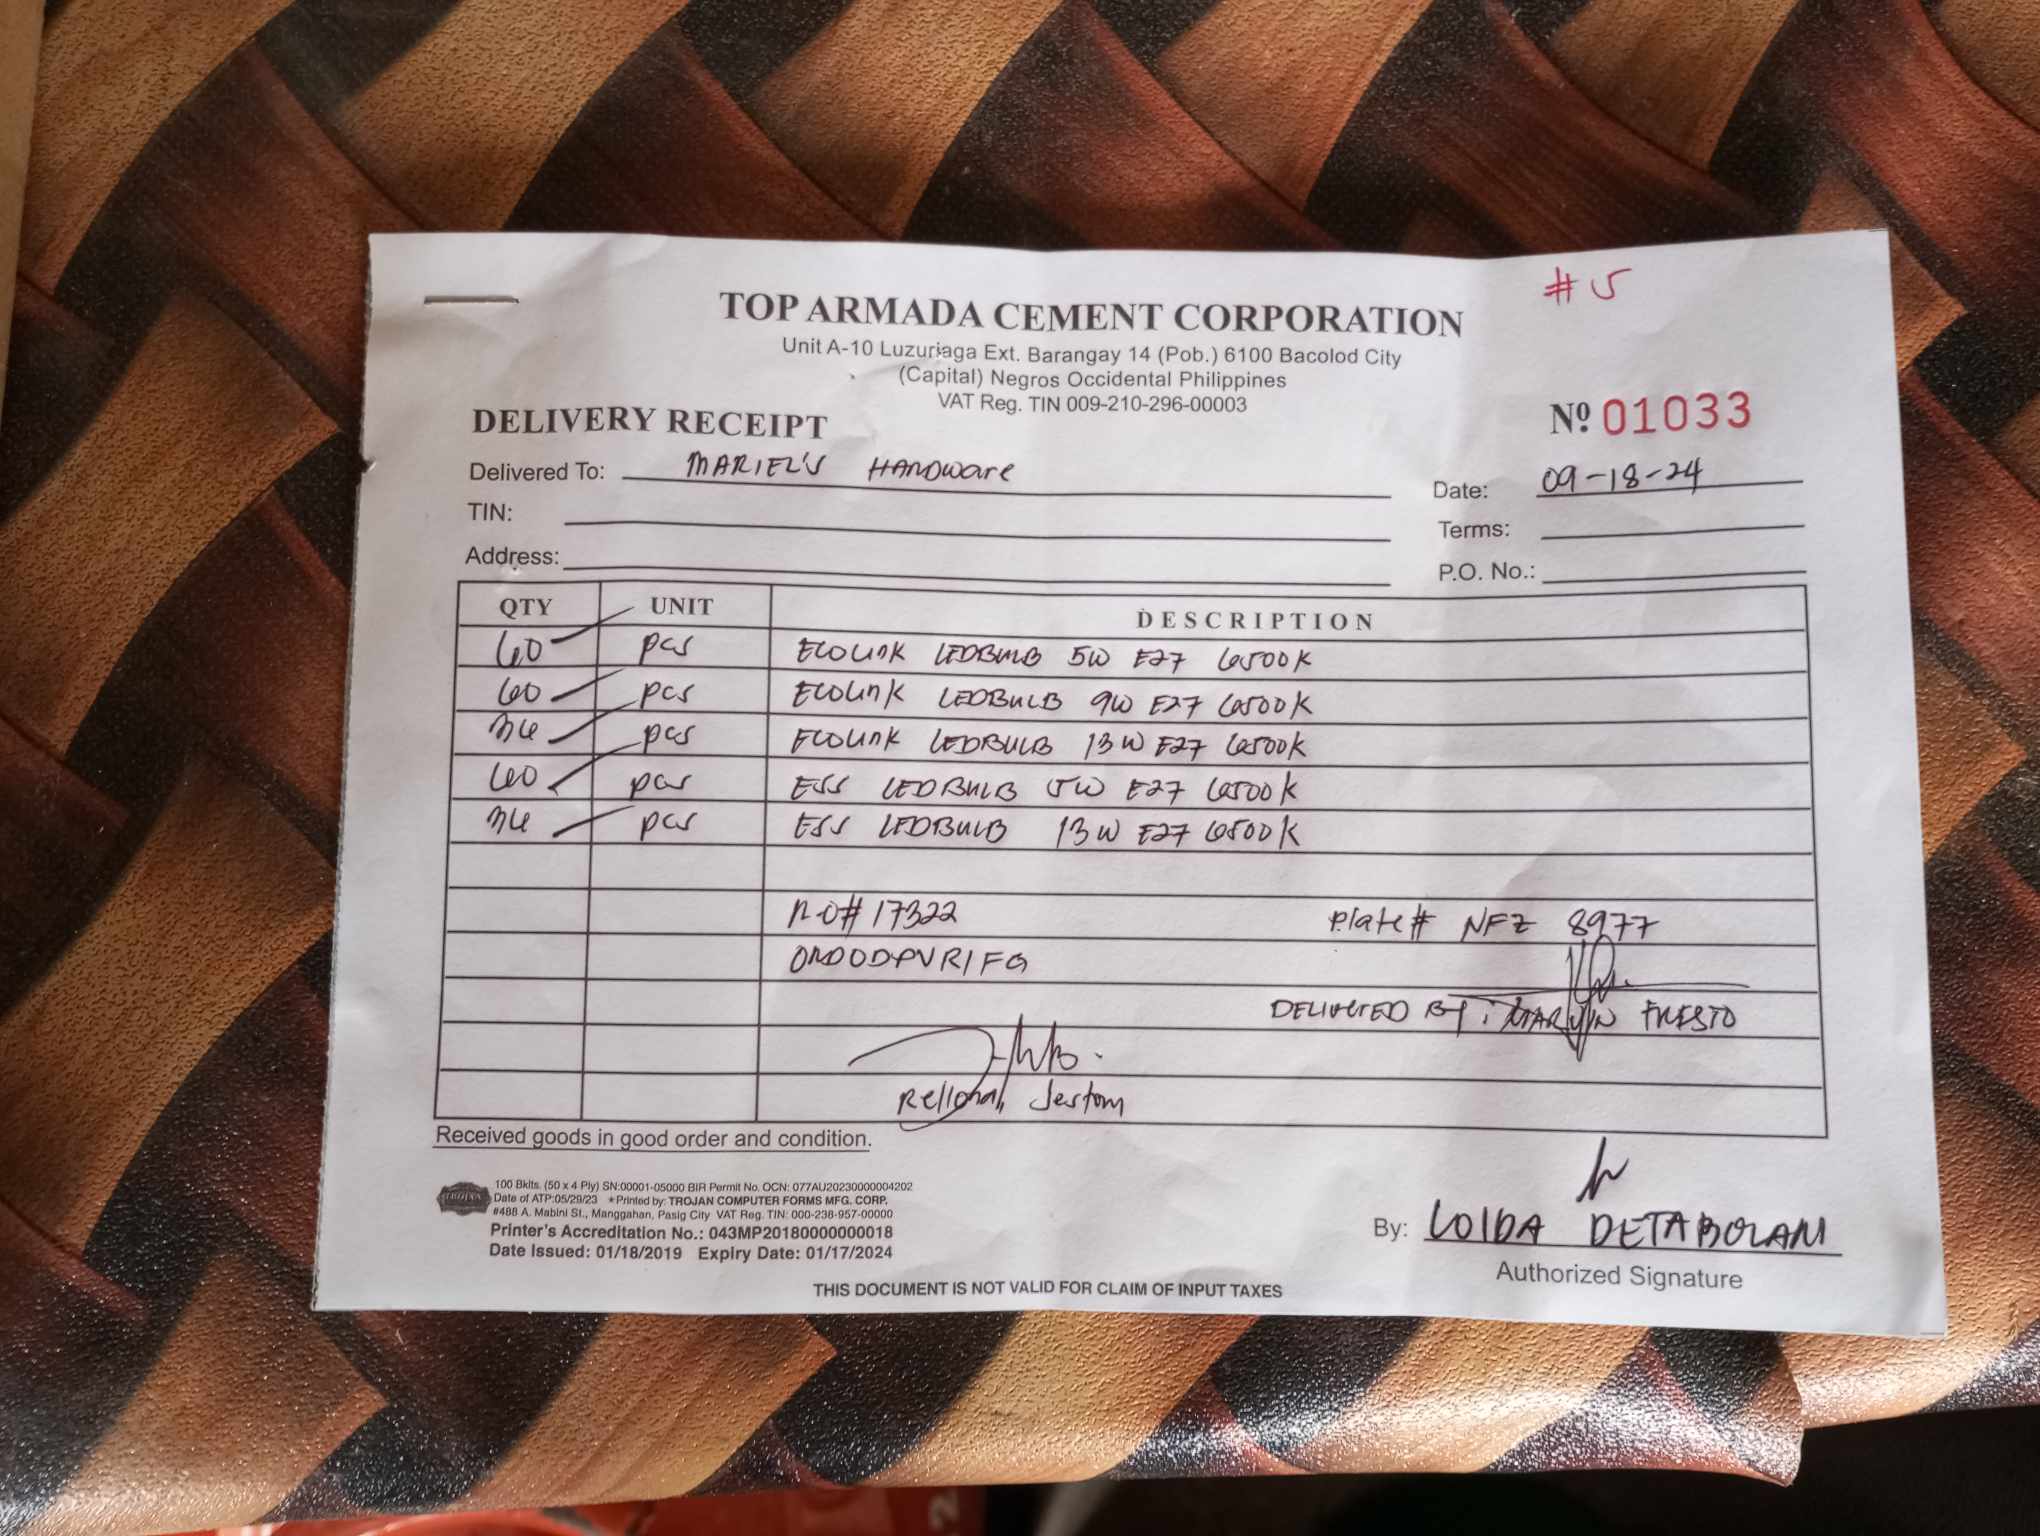 # 5
TOP ARMADA CEMENT CORPORATION
Unit A-10 Luzuriaga Ext. Barangay 14 (Pob.) 6100 Bacolod City
(Capital) Negros Occidental Philippines
VAT Reg. TIN 009-210-296-00003
DELIVERY RECEIPT
Nº 01033
Delivered To: MARIEL'S HARDWARE
Date: 09-18-24
TIN:
Terms:
Address:
P.O. No.:
QTY UNIT DESCRIPTION
60 pcs ECOLINK LEDBULB 5W E27 6500K
60 pcs ECOLINK LEDBULB 9W E27 6500K
36 pcs ECOLINK LEDBULB 13W E27 6500K
60 pcs ESS LEDBULB 5W E27 6500K
36 pcs ESS LEDBULB 13W E27 6500K
# 17322 Plate# NFZ 8977
DELIVERED BY: MARVIN
Jestom
Received goods in good order and condition.
TROJAN
100 Bklts. (50 x 4 Ply) SN:00001-05000 BIR Permit No. OCN: 077AU20230000004202
Date of ATP:05/29/23 *Printed by: TROJAN COMPUTER FORMS MFG. CORP.
#488 A. Mabini St., Manggahan, Pasig City VAT Reg. TIN: 000-238-957-00000
Printer's Accreditation No.: 043MP20180000000018
Date Issued: 01/18/2019 Expiry Date: 01/17/2024
By: LOIDA DETABOLAN
Authorized Signature
THIS DOCUMENT IS NOT VALID FOR CLAIM OF INPUT TAXES